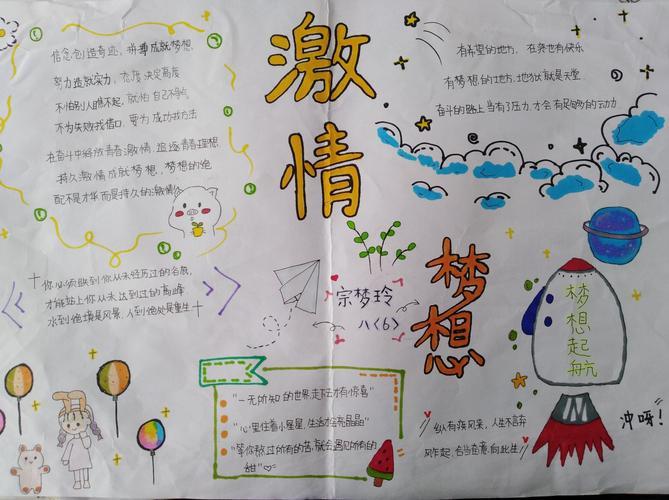 信念创造奇迹，拼搏成就梦想，
努力造就实力，态度决定高度
不怕别人瞧不起，就怕自己不争点
不为失败找借口，要为成功找方法
在奋斗中释放青春激情，追逐青春理想，
持久激情成就梦想，梦想的
配不是才华而是持久的激情
你必须跌到你从未经历过的谷底，
才能站上你从未达到过的高峰
水到绝境是风景，人到绝处是重生
激情
梦想
有希望的地方，在炎也有快乐
有梦想的地方，地狱就是天堂
奋斗的路上当有了压力，才会有足够的动力
宗梦玲
八〈6〉
梦想起航
冲呀！
"一无所知的世界走下去才有惊喜"
"心里住着小星星，生活才会亮晶晶"
"等你熬过所有的苦，就会遇见所有的
甜"
纵有疾风来，人生不言弃
风乍起，合当奋意向此生